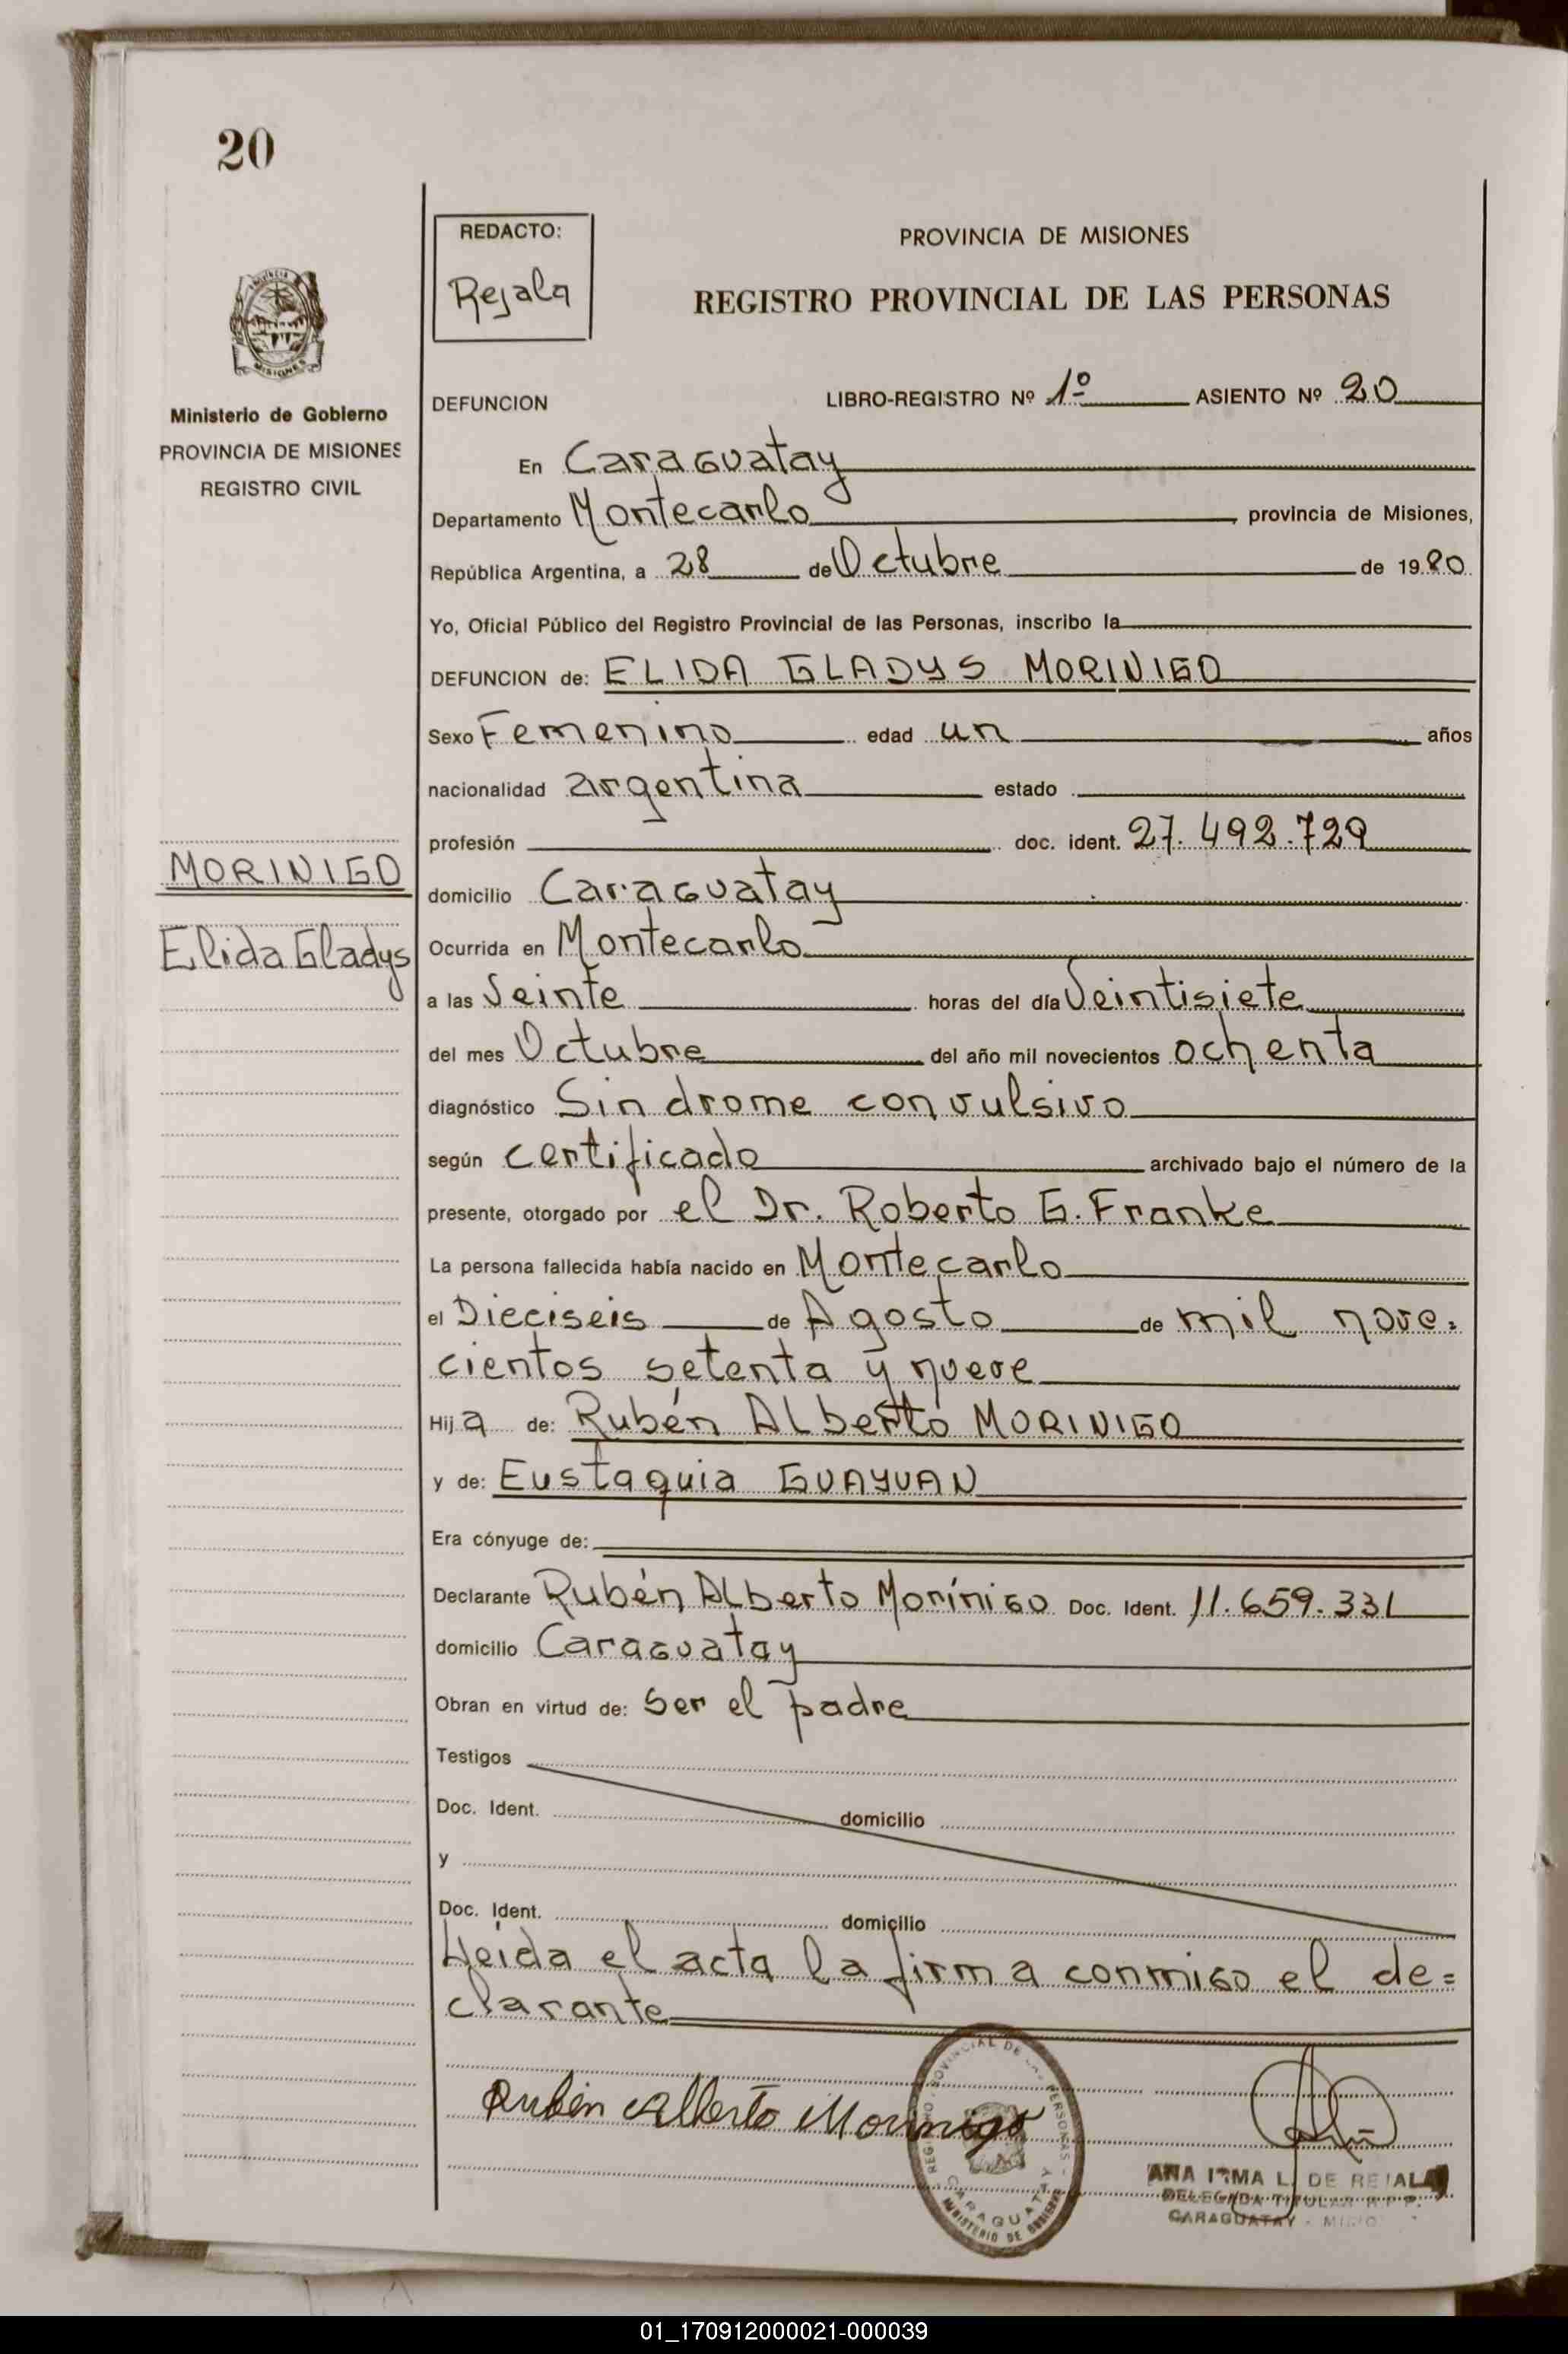 20
REDACTO:
Rejala
PROVINCIA DE MISIONES
REGISTRO PROVINCIAL DE LAS PERSONAS
MISIONES
Ministerio de Gobierno
PROVINCIA DE MISIONES
REGISTRO CIVIL
DEFUNCION LIBRO-REGISTRO Nº 1º ASIENTO Nº 20
En Caraguatay
Departamento Montecarlo, provincia de Misiones,
República Argentina, a 28 de Octubre de 1980
Yo, Oficial Público del Registro Provincial de las Personas, inscribo la
DEFUNCION de: ELIDA GLADYS MORINIGO
Sexo Femenino edad un años
nacionalidad argentina estado
profesión doc. ident. 27.492.729
MORINIGO
domicilio Caraguatay
Elida Gladys
Ocurrida en Montecarlo
a las Veinte horas del día Veintisiete
del mes Octubre del año mil novecientos ochenta
diagnóstico Sindrome convulsivo
según certificado archivado bajo el número de la
presente, otorgado por el Dr. Roberto G. Franke
La persona fallecida había nacido en Montecarlo
el Dieciseis de Agosto de mil nove=
cientos setenta y nueve
Hija de: Rubén Alberto MORINIGO
y de: Eustaquia GUAYUAN
Era cónyuge de:
Declarante Rubén Alberto Morínigo Doc. Ident. 11.659.331
domicilio Caraguatay
Obran en virtud de: Ser el padre
Testigos
Doc. Ident. domicilio
y
Doc. Ident. domicilio
Leída el acta la firma conmigo el de=
clarante
Rubén Alberto Morinigo
CARAGUATAY
MINISTERIO DE GOBIERNO
ANA IRMA L. DE REJALA
DELEGADA TITULAR R.P.P.
CARAGUATAY -
01_170912000021-000039